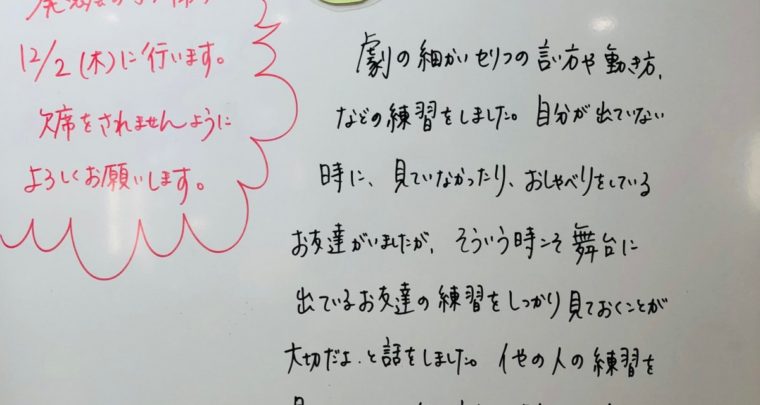 12/2(木)に行います。
欠席をされませんように
よろしくお願いします。
劇の細かいセリフの言い方や動き方、
などの練習をしました。自分が出ていない
時に、見ていなかったり、おしゃべりをしている
お友達がいましたが、そういう時こそ舞台に
出ているお友達の練習をしっかり見ておくことが
大切だよ、と話をしました。他の人の練習を